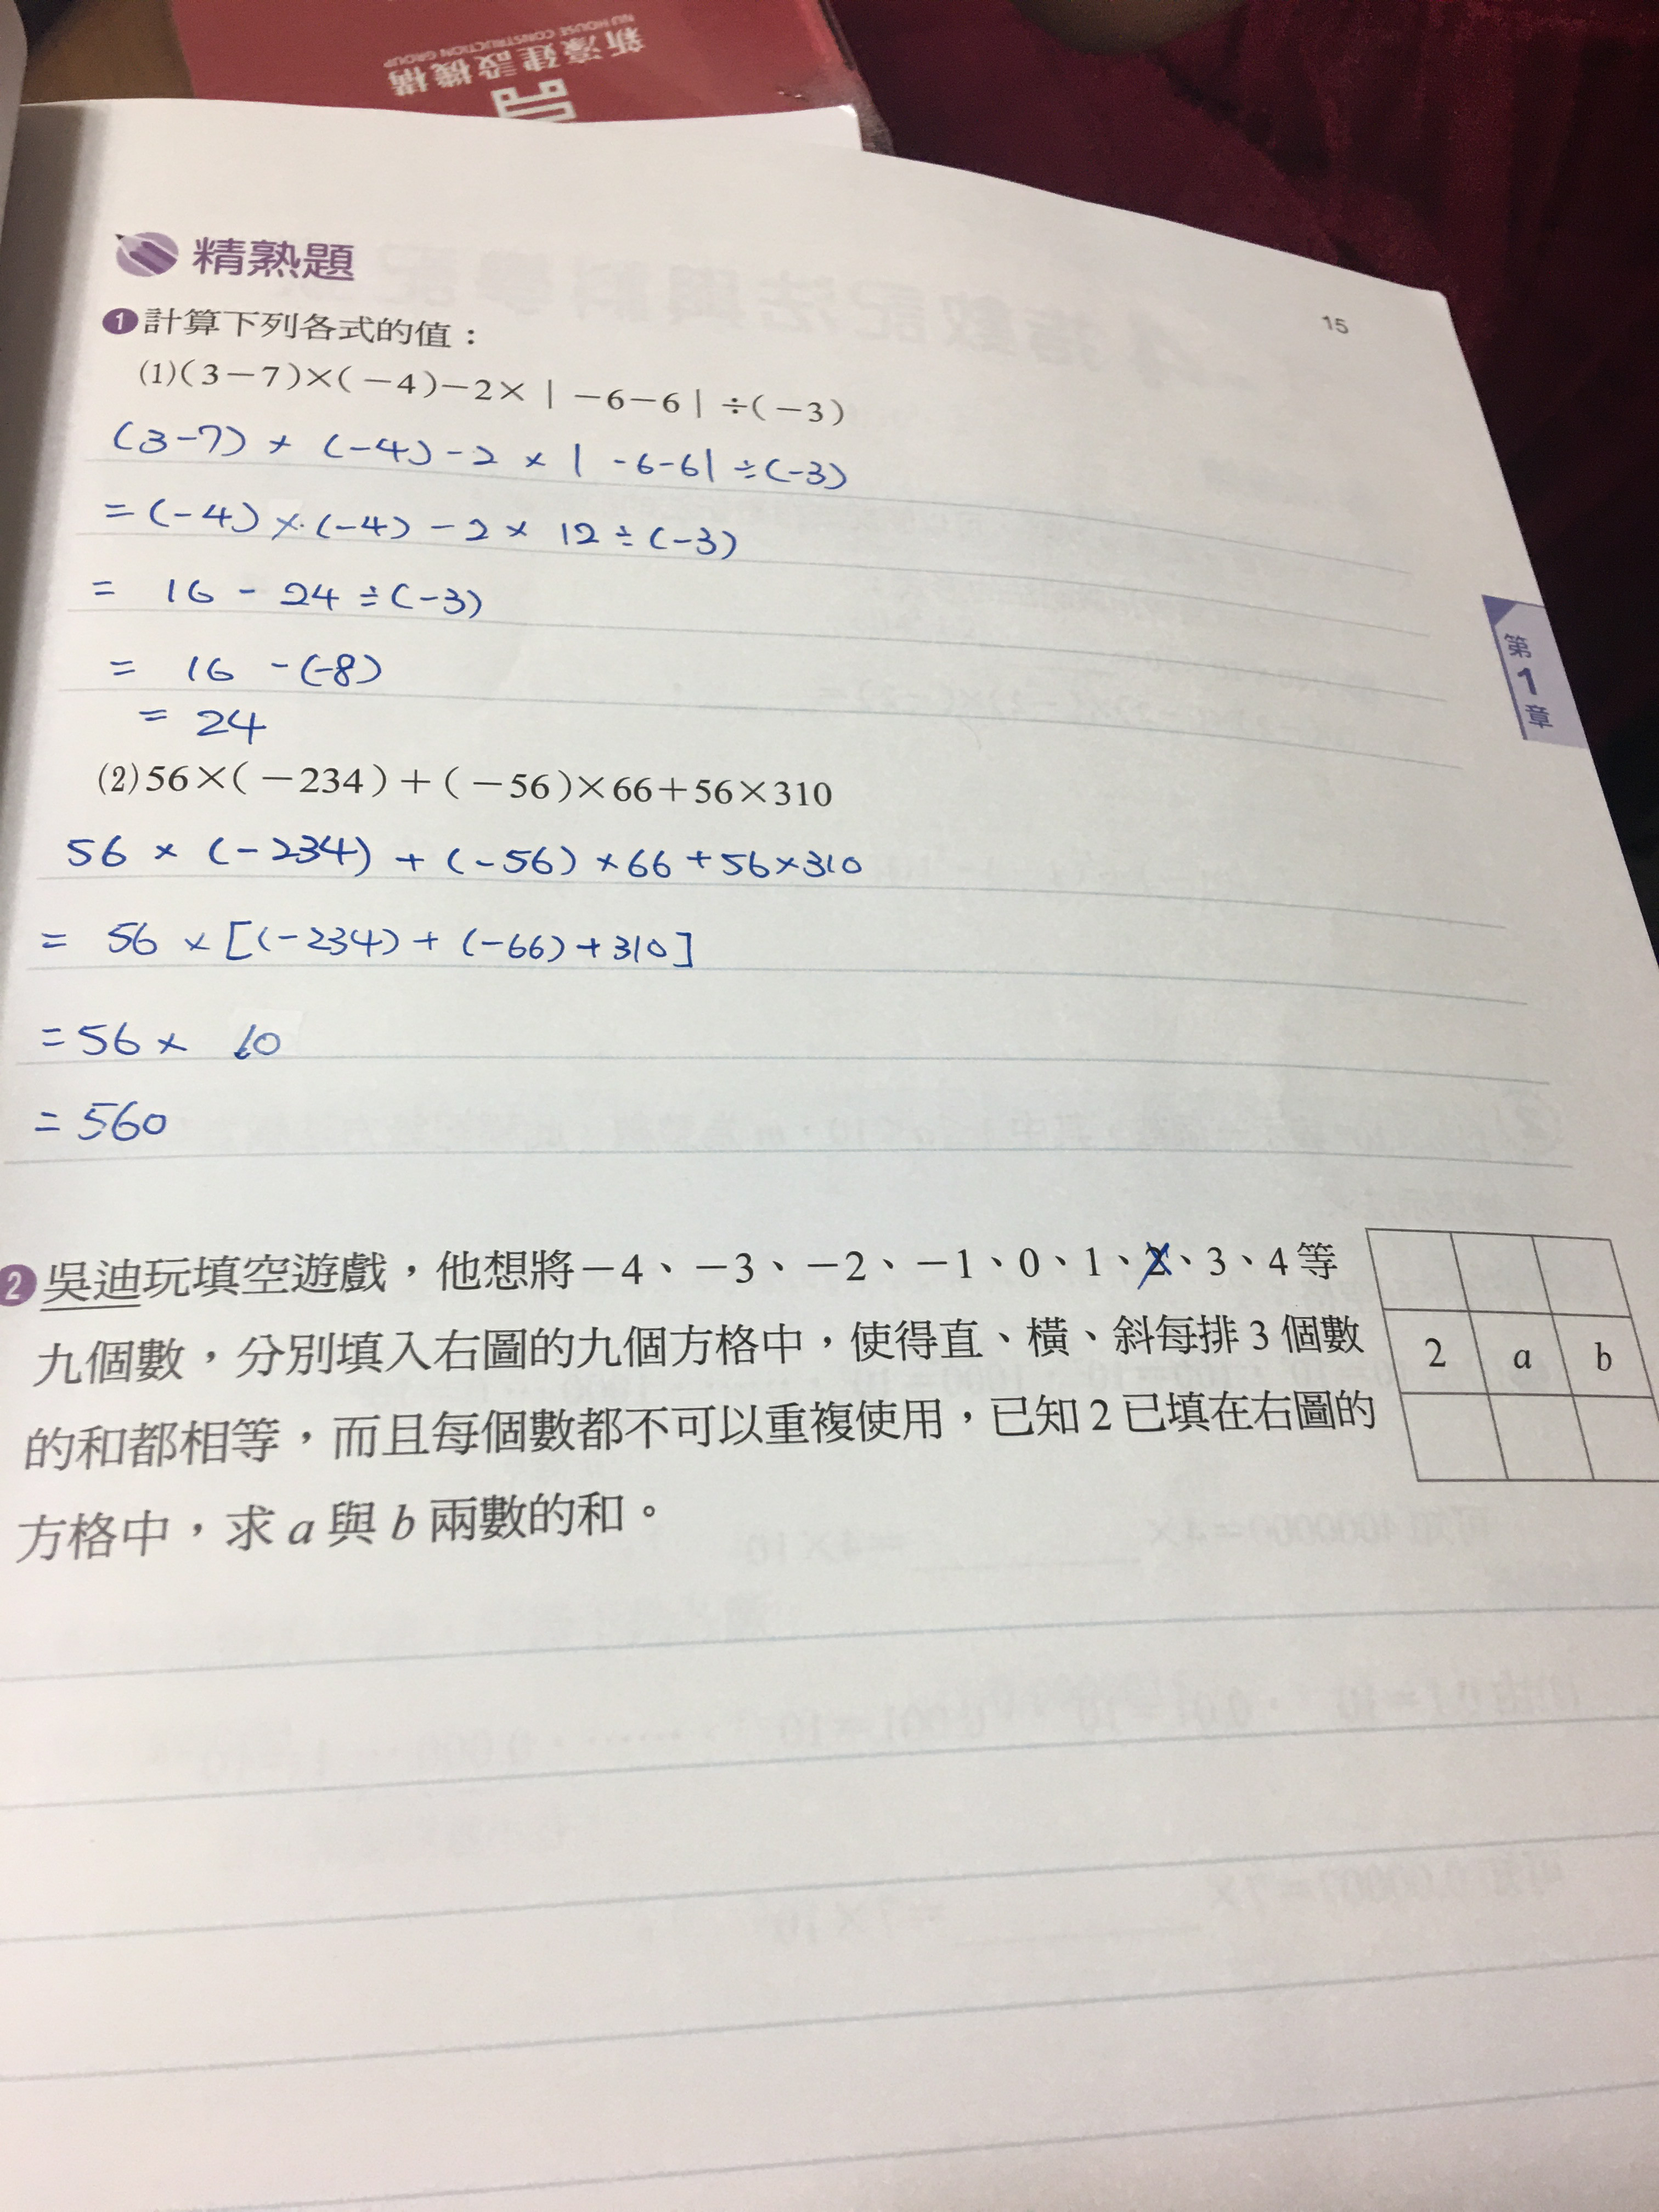 NU HOUSE CONSTRUCTION GROUP
新濠建設機構
精熟題
15
1 計算下列各式的值：
(1)(3－7)×(－4)－2×｜－6－6｜÷(－3)
(3-7) × (-4) - 2 × | -6-6| ÷(-3)
= (-4) × (-4) - 2 × 12 ÷ (-3)
= 16 - 24 ÷ (-3)
= 16 - (-8)
= 24
第1章
(2)56×(－234)＋(－56)×66＋56×310
56 × (-234) + (-56) × 66 + 56×310
= 56 × [(-234) + (-66) + 310]
= 56 × 10
= 560
2 吳迪玩填空遊戲，他想將－4、－3、－2、－1、0、1、2、3、4等
九個數，分別填入右圖的九個方格中，使得直、橫、斜每排3個數
的和都相等，而且每個數都不可以重複使用，已知2已填在右圖的
方格中，求a與b兩數的和。
2 a b